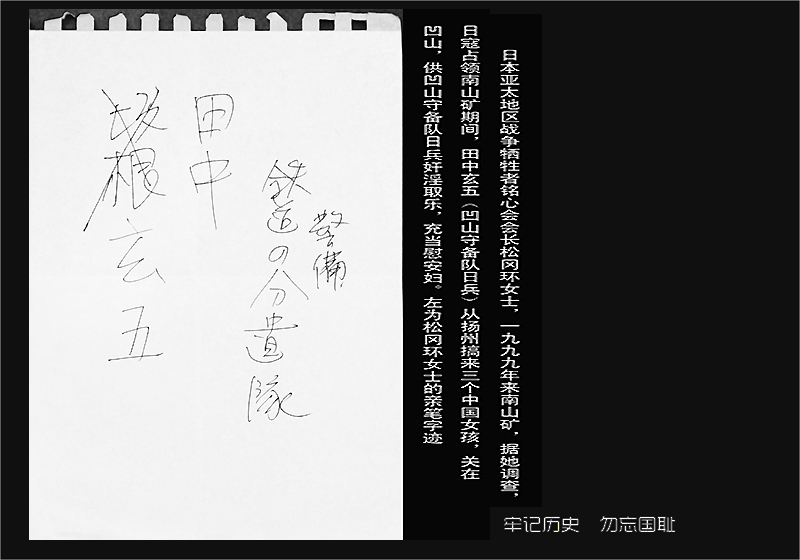 日本亚太地区战争牺牲者铭心会会长松冈环女士，一九九九年来南山矿，据她调查，
日寇占领南山矿期间，田中玄五（凹山守备队日兵）从扬州搞来三个中国女孩，关在
凹山，供凹山守备队日兵奸淫取乐，充当慰安妇。左为松冈环女士的亲笔字迹
警備
鉄道の分遣隊
田中
坂根玄五
牢记历史 勿忘国耻